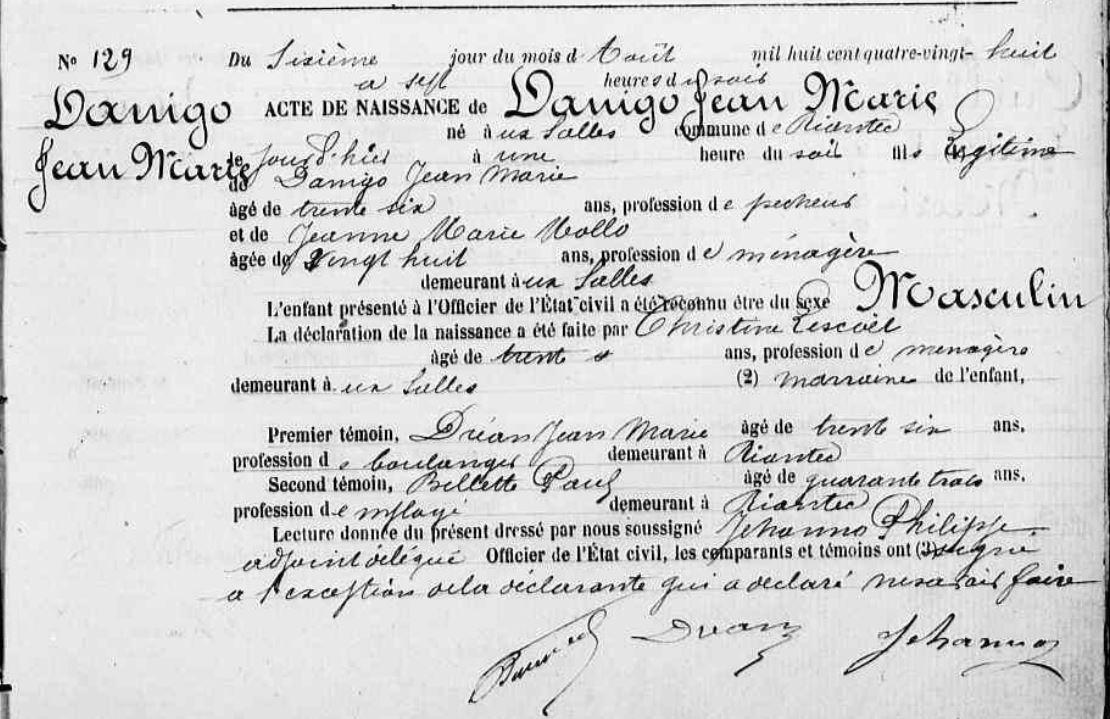 No 129 Du Sixième jour du mois d Août mil huit cent quatre-vingt- huit
a sept heures du soir
Danigo Jean Marie
ACTE DE NAISSANCE de Danigo Jean Marie
né à ux Salles commune de Riantec
le jourd'hier à une heure du soir fils légitime
de Danigo Jean Marie
âgé de trente six ans, profession de pecheur
et de Jeanne Marie Mollo
âgée de vingt huit ans, profession de ménagère
demeurant à ux Salles
L'enfant présenté à l'Officier de l'État civil a été reconnu être du sexe Masculin
La déclaration de la naissance a été faite par Christine Lescoët
âgé de trente ans, profession de menagère
demeurant à ux Salles (2) marraine de l'enfant,
Premier témoin, Dréan Jean Marie âgé de trente six ans,
profession de boulanger demeurant à Riantec
Second témoin, Billette Paul âgé de quarante trois ans,
profession d demeurant à Riantec
Lecture donnée du présent dressé par nous soussigné Jehanno Philippe
adjoint délégué Officier de l'État civil, les comparants et témoins ont (3) signé
a l'exception de la déclarante qui a declaré ne savoir faire
Drean Jehanno